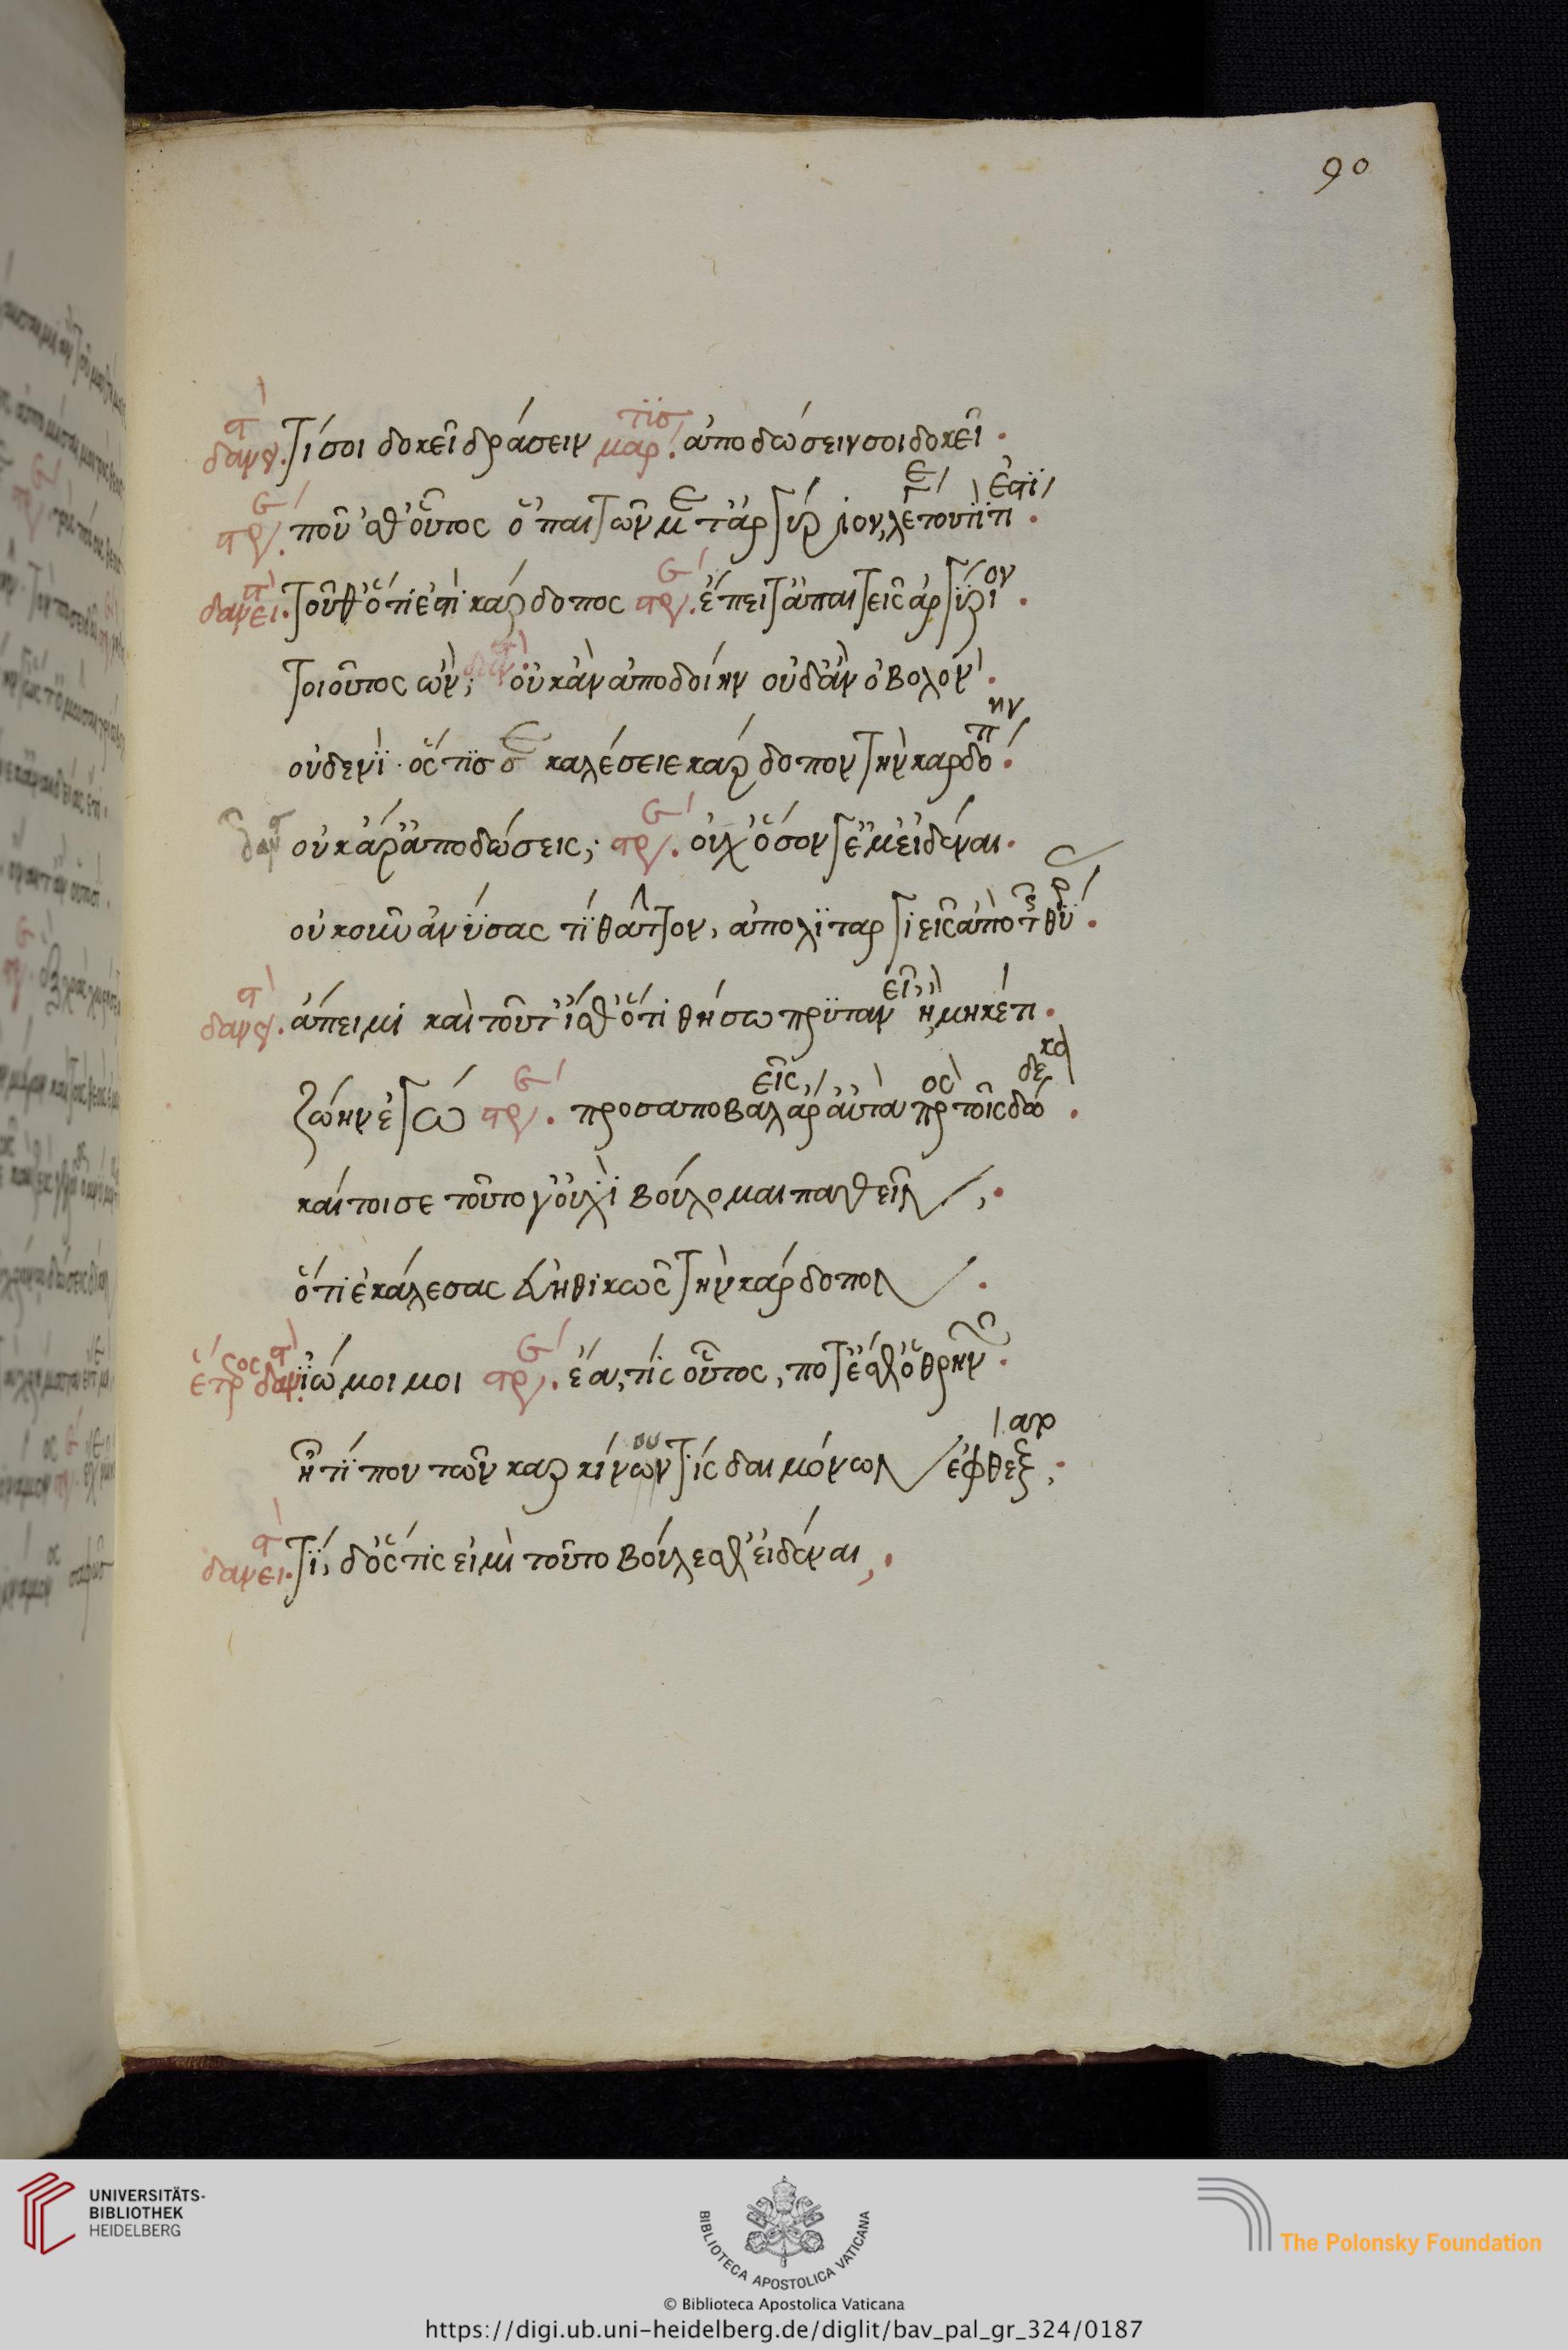 90
δανει. Τί σοι δοκεῖ δράσειν μαρτίς. ἀποδώσειν σοι δοκεῖ.
πρεσ. ποῦ 'σθ' οὗτος ὁ 'παιτῶν με τἀργύριον, λέγε τουτὶ τί ἐστι.
δανει. Τοῦθ' ὅτι ἐστὶ κάρδοπος πρεσ. ἔπειτ' ἀπαιτεῖς ἀργύριον.
Τοιοῦτος ὤν; δαν. οὐκ ἂν ἀποδοίην οὐδ' ἂν ὀβολόν.
οὐδενὶ. ὅστις καλέσειε κάρδοπον τὴν καρδόπην.
δαν οὐκ ἄρ' ἀποδώσεις; πρεσ. οὐχ ὅσον γέ μ' εἰδέναι.
οὐκοῦν ἀνύσας τί θᾶττον, ἀπολιταργιεῖς ἀπὸ τῆς θύρας.
δανει. ἄπειμι καὶ τοῦτ' ἴσθ' ὅτι θήσω πρυτανεῖ' ἢ μηκέτι.
ζώην ἐγώ πρεσ. προσαποβαλεῖς ἄρ' αὐτὰ πρὸς τοῖς δώδεκα.
καίτοι σε τοῦτο γ' οὐχὶ βούλομαι παθεῖν,.
ὅτι ἐκάλεσας εὐηθικῶς τὴν κάρδοπον.
ἕτερος δαν. ἰώ μοι μοι πρεσ. ἔα, τίς οὗτος, ποτ' ἔσθ' ὁ θρηνῶν.
ἤ τί που τῶν καρκίνου τίς δαιμόνων ἐφθέγξατο.
δανει. Τί, δ' ὅστις εἰμὶ τοῦτο βούλεσθ' εἰδέναι,.
UNIVERSITÄTS-
BIBLIOTHEK
HEIDELBERG
BIBLIOTECA APOSTOLICA VATICANA
The Polonsky Foundation
© Biblioteca Apostolica Vaticana
https://digi.ub.uni-heidelberg.de/diglit/bav_pal_gr_324/0187